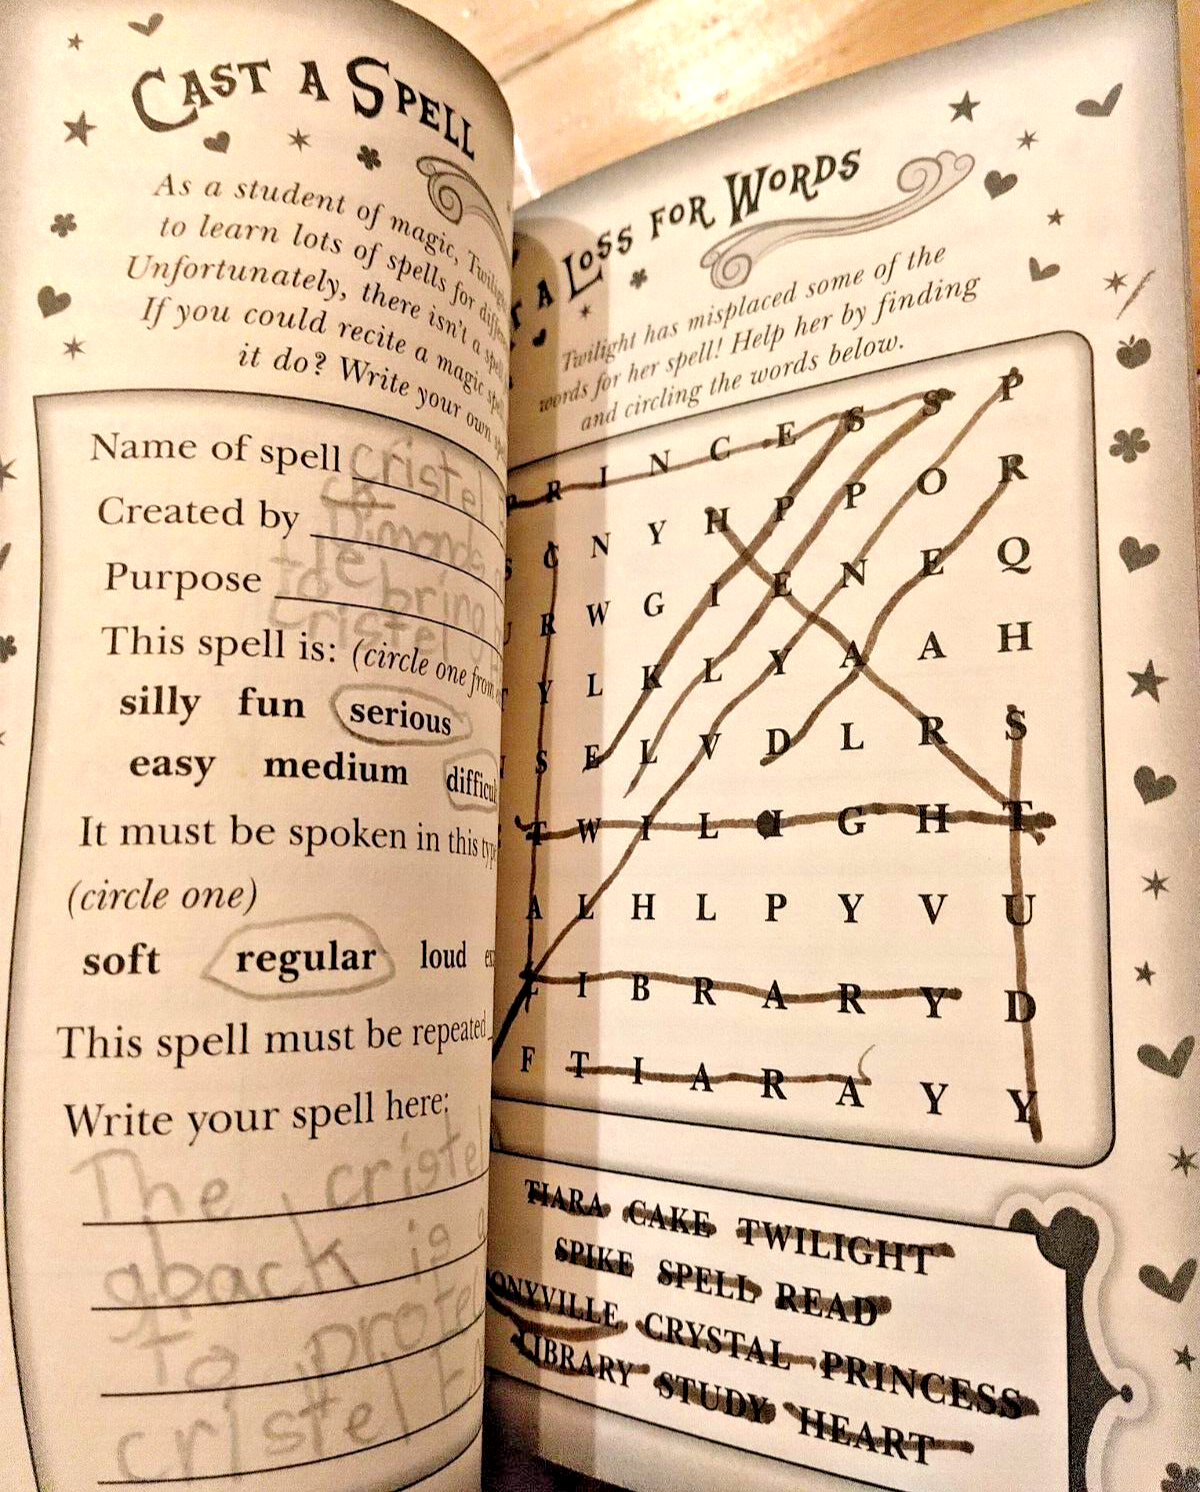 CAST A SPELL
As a student of magic,
to learn lots of spells for
Unfortunately, there isn't a
If you could recite a magic
it do? Write your own
Name of spell cristel
Created by Dimonde
Purpose to bring
cristel
This spell is: (circle one from
silly fun serious
easy medium
It must be spoken in this
(circle one)
soft regular loud
This spell must be repeated
Write your spell here:
The cristel
aback is
To protel
cristel
A LOSS FOR WORDS
Twilight has misplaced some of the
words for her spell! Help her by finding
and circling the words below.
P R I N C E S S P
S C N Y H P P O R
U R W G I E N E Q
T Y L K L Y A A H
S E L V D L R S
T W I L I G H T
A L H L P Y V U
L I B R A R Y D
F T I A R A Y Y
TIARA CAKE TWILIGHT
SPIKE SPELL READ
ONYVILLE CRYSTAL PRINCESS
LIBRARY STUDY HEART